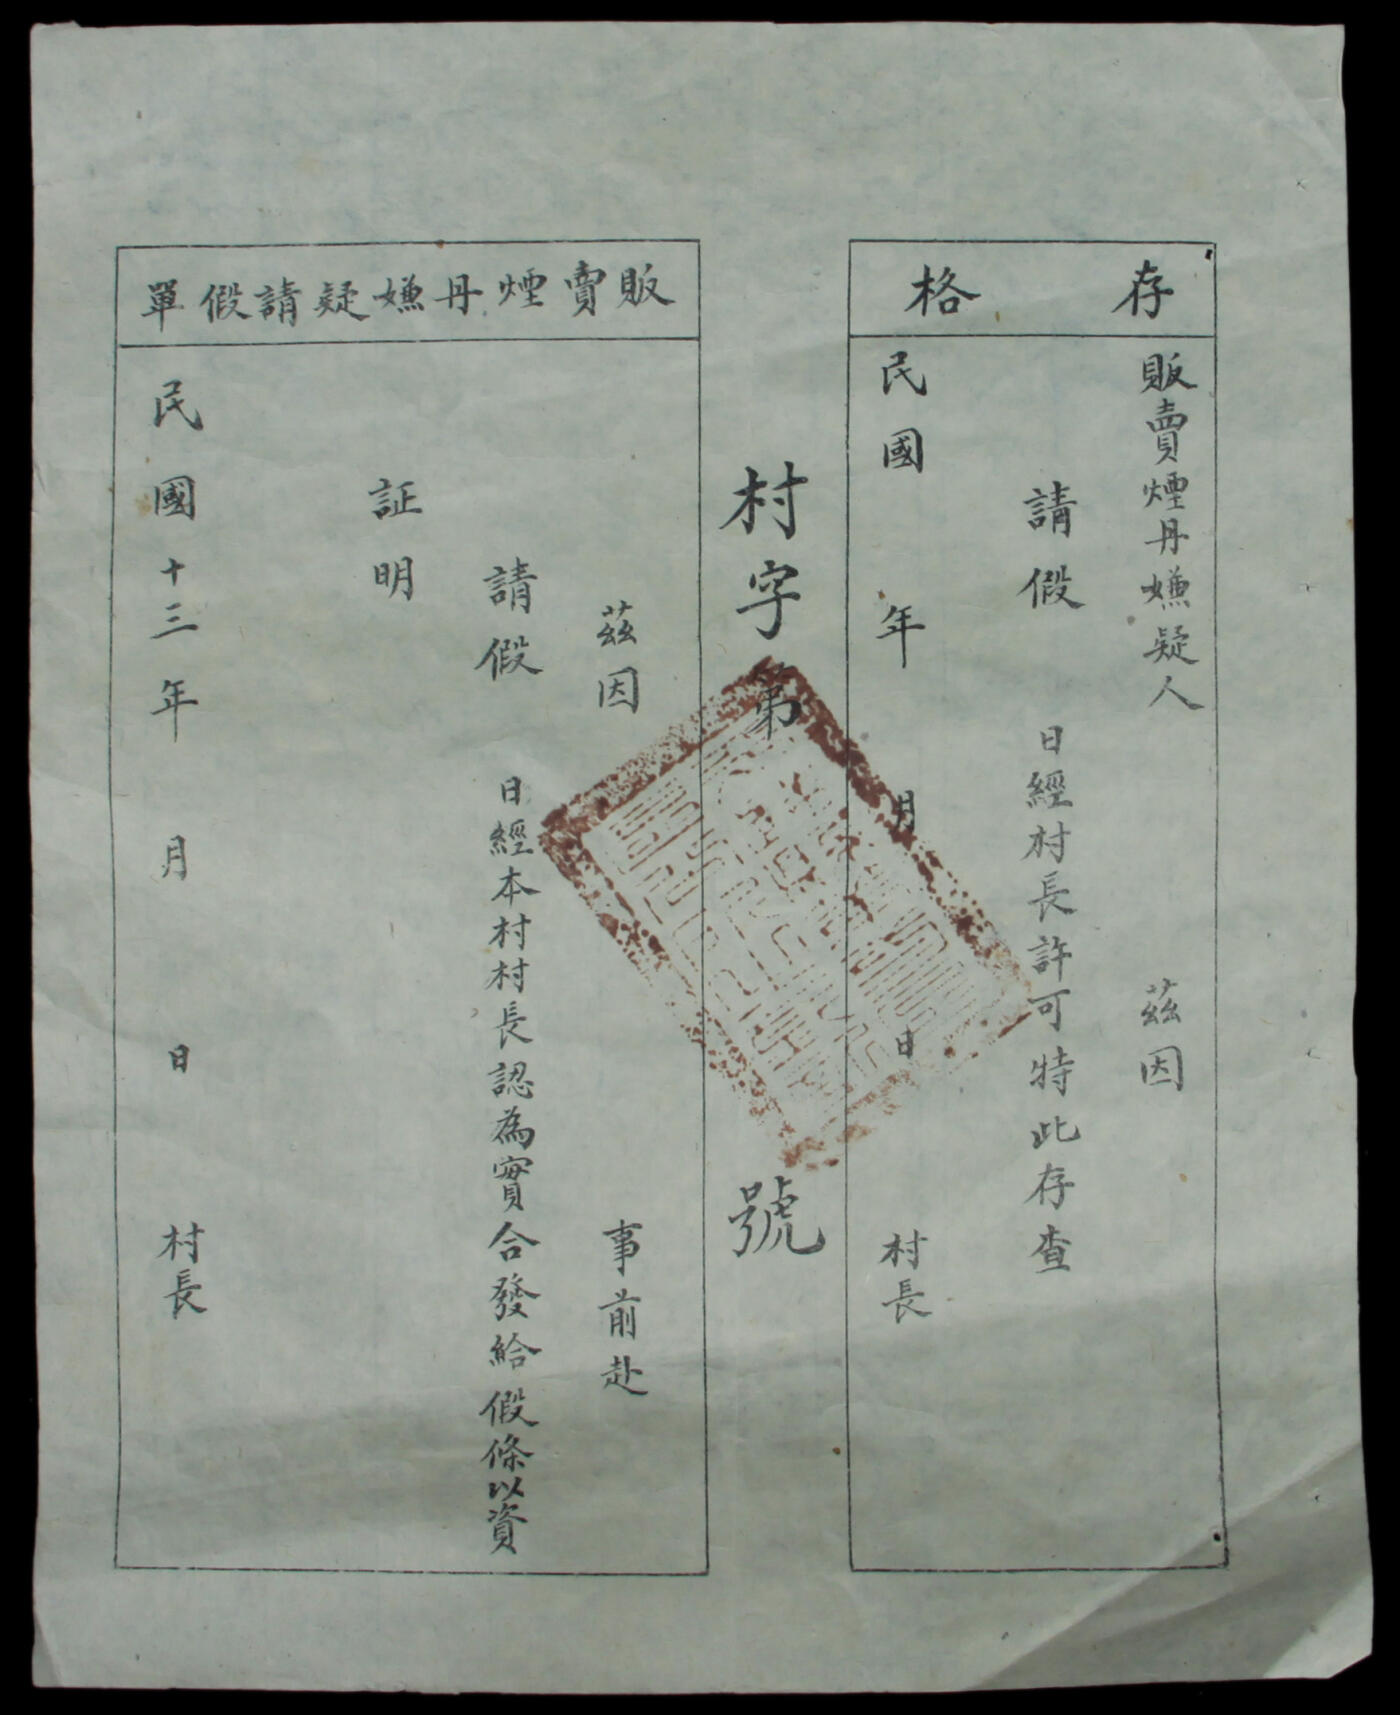 存格
販賣煙丹嫌疑人 茲因
請假 日經村長許可特此存查
民國 年 月 日 村長
村字第 號
販賣煙丹嫌疑請假單
茲因 事前赴
請假 日經本村村長認為實合發給假條以資
証明
民國十三年 月 日 村長